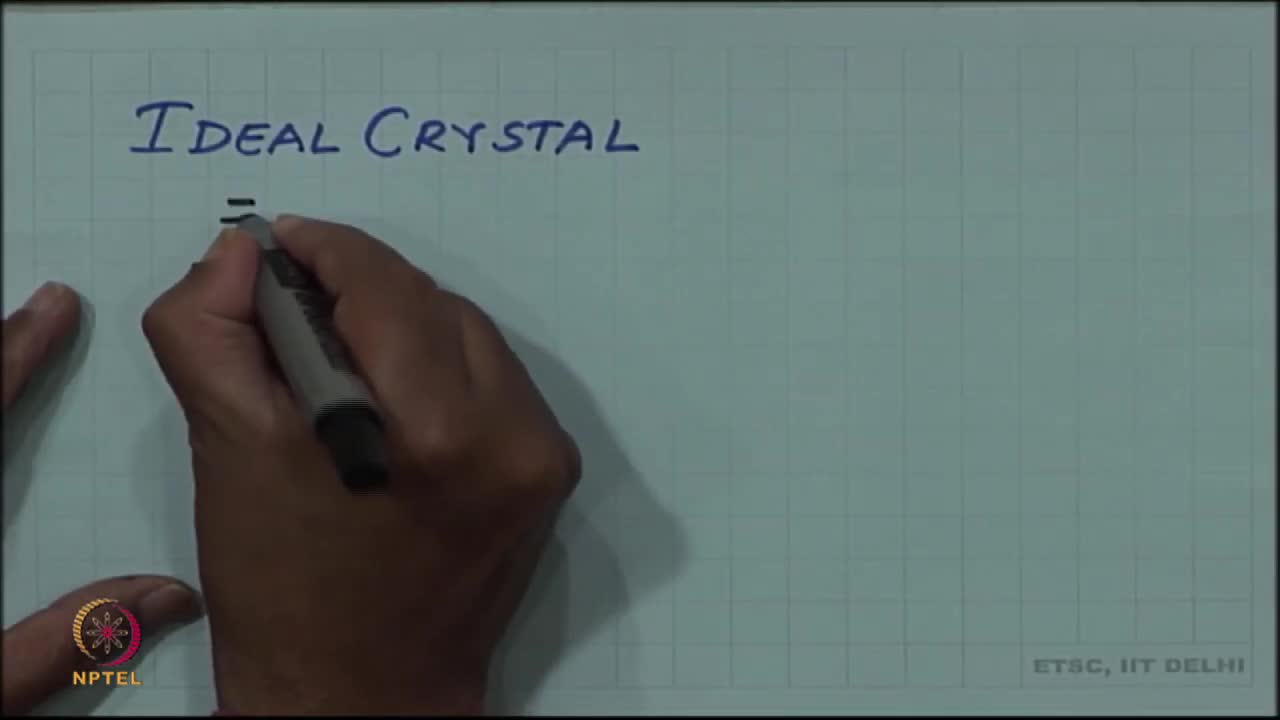 IDEAL CRYSTAL
=
NPTEL
ETSC, IIT DELHI